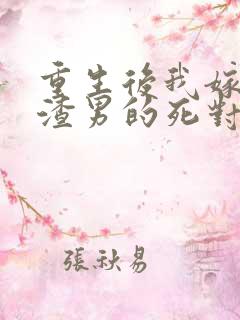 重生後我嫁
渣男的死對
張秋易